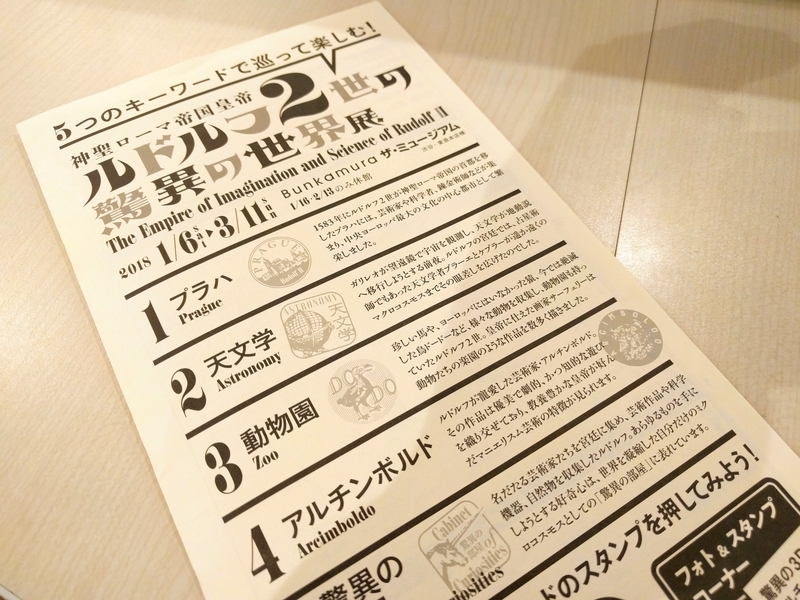 5つのキーワードで巡って楽しむ!
神聖ローマ帝国皇帝
ルドルフ2世の
驚異の世界展
The Empire of Imagination and Science of Rudolf II
2018 1/6 Sat ▸ 3/11 Sun
Bunkamura ザ・ミュージアム
渋谷・東急本店横
1/16・2/13のみ休館
1 プラハ
Prague
PRAGUE
Rudolf II
1583年にルドルフ2世が神聖ローマ帝国の首都を移
したプラハには、芸術家や科学者、錬金術師などが集
まり、中央ヨーロッパ最大の文化の中心都市として繁
栄しました。
2 天文学
Astronomy
ASTRONOMY
天文学
ガリレオが望遠鏡で宇宙を観測し、天文学が地動説
へ移行しようとする前夜。ルドルフの宮廷では、占星術
師でもあった天文学者ブラーエとケプラーが遥か遠くの
マクロコスモスまでその眼差しを広げたのでした。
3 動物園
Zoo
DODO
珍しい馬や、ヨーロッパにはいなかった猿、今では絶滅
した鳥ドードーなど、様々な動物を収集し、動物園も持っ
ていたルドルフ2世。皇帝に仕えた画家サーフェリーは
動物たちの楽園のような作品を数多く描きました。
4 アルチンボルド
Arcimboldo
ルドルフが寵愛した芸術家・アルチンボルド。
その作品は優美で劇的、かつ知的な遊び
を織り交ぜており、教養豊かな皇帝が好ん
だマニエリスム芸術の特徴が見られます。
驚異の
Cabinet
of
Curiosities
驚異の
部屋
名だたる芸術家たちを宮廷に集め、芸術作品や科学
機器、自然物を収集したルドルフ。あらゆるものを手に
しようとする好奇心は、世界を凝縮した自分だけのミク
ロコスモスとしての「驚異の部屋」に表れています。
ドのスタンプを押してみよう!
フォト&スタンプ
コーナー
驚異の3D